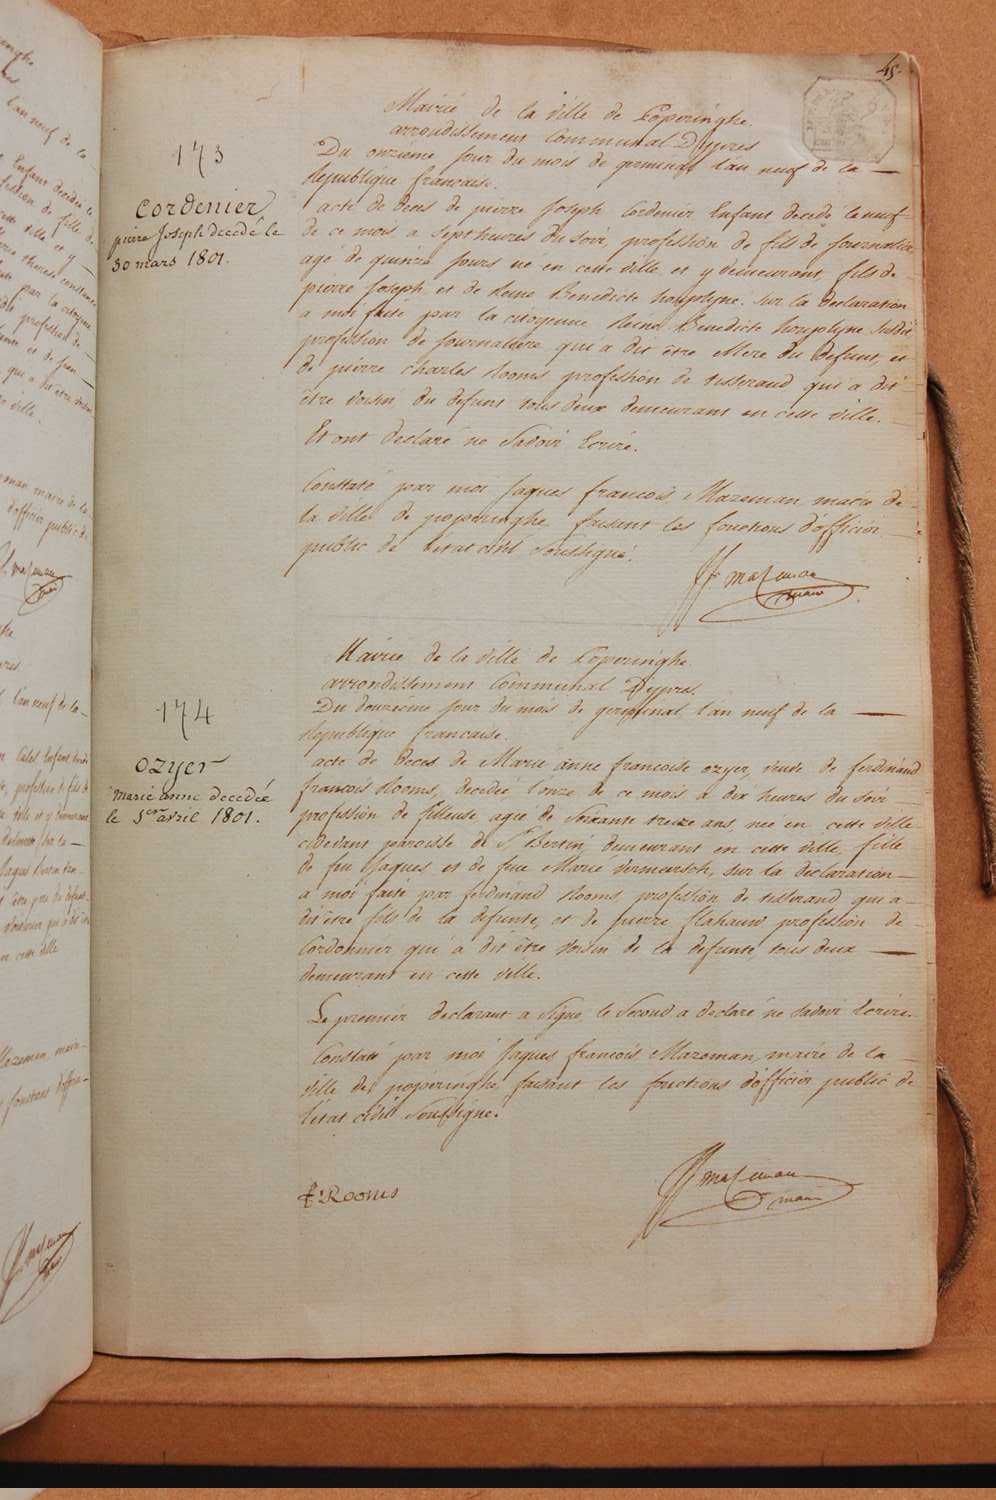 45.
173
Cordenier
pierre Joseph decedé le
30 mars 1801.
Mairie de la ville de Poperinghe
arrondissement Communal D'ypres
Du onzieme Jour du mois de germinal l'an neuf de la —
Republique française.
acte de deces de pierre Joseph Cordenier Enfant decedé le neuf
de ce mois a sept heures du soir, profession de fils de Journaliere
agé de quinze Jours né en cette ville et y demeurant, fils de
pierre Joseph et de Reine Benedicte houplyne. sur la declaration
a moi faite par la citoyenne Reine Benedicte houplyne susdit
profession de Journaliere qui a dit être Mere du defunt, et
de pierre charles Rooms profession de tisserand qui a dit
être voisin du defunt tous deux demeurant en cette ville.
Et ont declaré ne Savoir Ecrire.
Constaté par moi Jaques francois Mazeman, maire de
la ville de poperinghe faisant les fonctions d'officier
public de l'etat civil Soussigné.
JF mazeman
maire
174
Ozyer
marie anne decedée
le 1er avril 1801.
Mairie de la ville de Poperinghe
arrondissement Communal D'ypres.
Du douzieme Jour du mois de germinal l'an neuf de la —
Republique francaise.
acte de deces de Marie anne francoise ozyer, veuve de ferdinand
francois Rooms, decedée l'onze de ce mois a dix heures du soir
profession de fileuse, agée de Soixante treize ans, née en cette ville
cidevant paroisse de St Bertin, demeurant en cette ville, fille
de feu Jaques et de feue Marie vermeersch, sur la declaration
a moi faite par ferdinand Rooms profession de tisserand qui a
dit être fils de la defunte, et de pierre flahauw profession de
Cordonnier qui a dit être voisin de la defunte, tous deux —
demeurant en cette ville.
Le premier declarant a Signé le Second a declaré ne Savoir Ecrire.
Constaté par moi Jaques francois Mazeman, maire de la
ville de poperinghe faisant les fonctions d'officier public de
l'etat civil Soussigné.
f Rooms
JF mazeman
maire